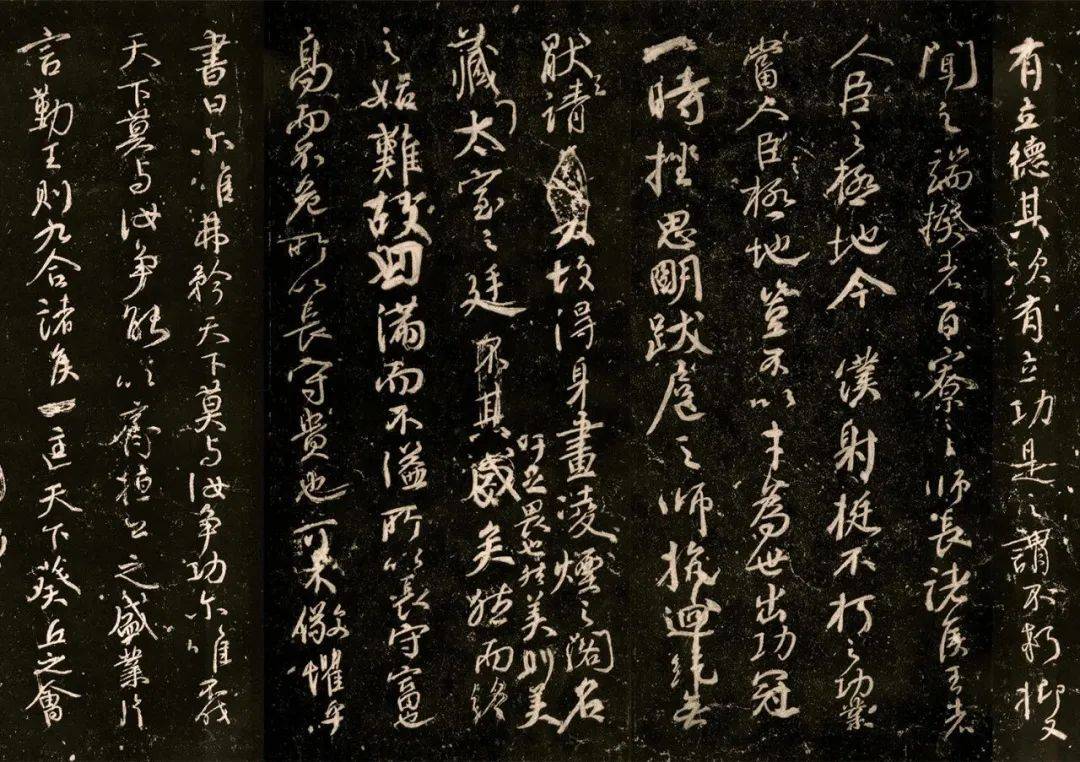 有立德其次有立功是之謂不朽抑又
聞之端揆者百寮之師長諸侯王者
人臣之極地今僕射挺不朽之功業
當人臣極地豈不以才為世出功冠
一時挫思明跋扈之師抗迴紇無
厭之請故得身畫凌煙之閣名
藏太室之廷吁足畏也然美則美
矣然而終
之始難故曰滿而不溢所以長守富也
高而不危所以長守貴也可不儆懼乎
書曰尔唯弗矜天下莫与汝争功尔唯不伐
天下莫与汝争能以齊桓公之盛業片
言勤王則九合諸侯一匡天下葵丘之會